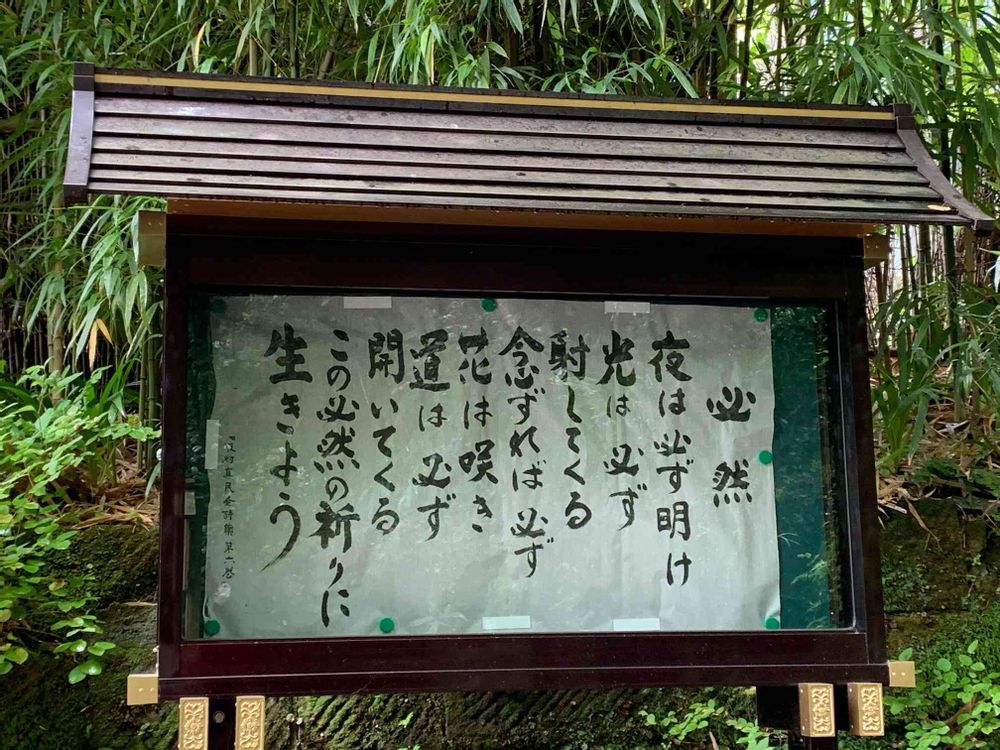 必然
夜は必ず明け
光は 必ず
射してくる
念ずれば 必ず
花は咲き
道は 必ず
開いてくる
この必然の祈りに
生きよう
坂村真民全詩集第六巻